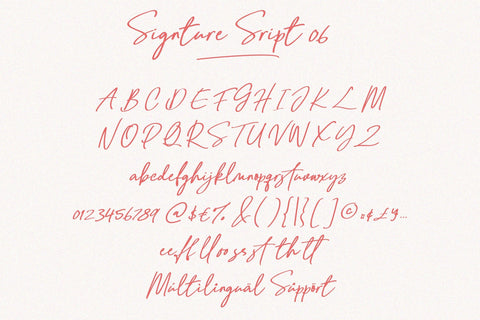 Signture Sript 06
ABCDEFGHIJKLM
NOPQRSTUVWXYZ
abcdefghijklmnopqrstuvwxyz
0123456789 @$€% &(){|}[]©¤¢£¥...
ee ff ll oo ss st th tt
Multilingual Support